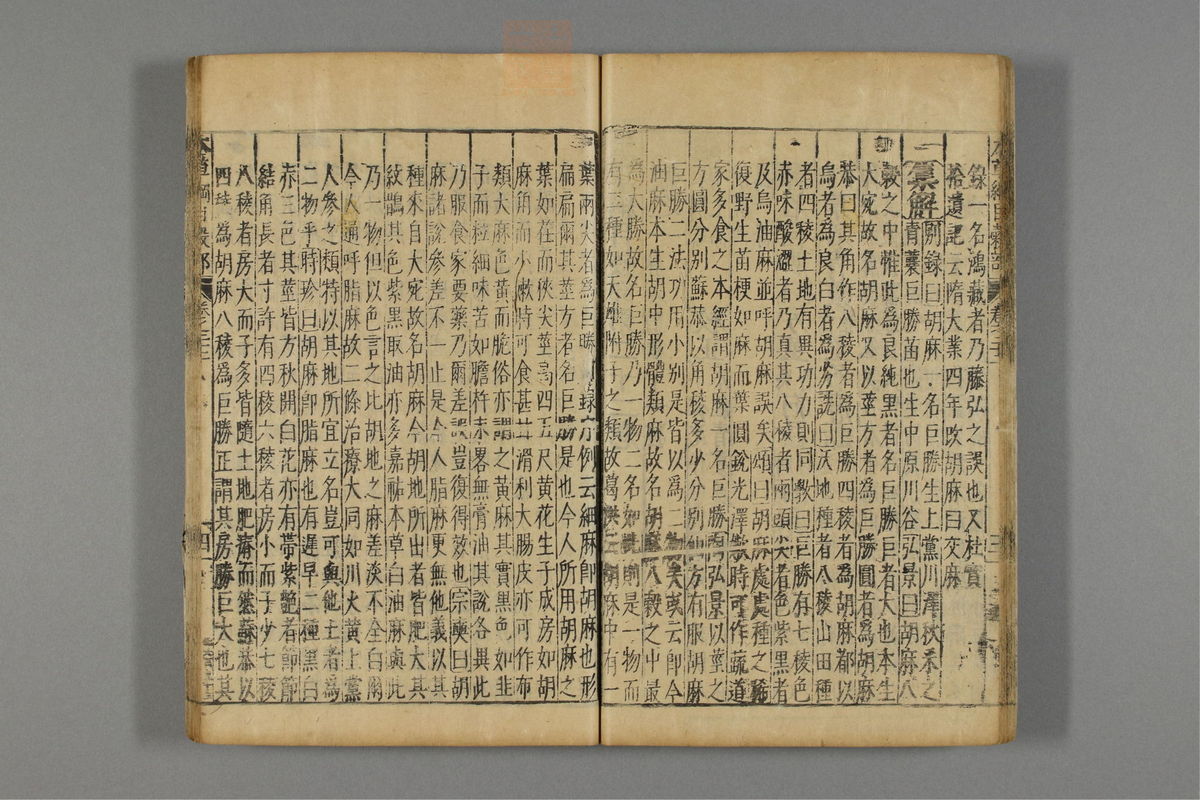 錄一名鴻藏者乃藤弘之誤也又杜寶
拾遺記云隋大業四年改胡麻曰交麻
集解別錄曰胡麻一名巨勝生上黨川澤秋采之
青蘘巨勝苗也生中原川谷弘景曰胡麻八
穀之中惟此爲良純黑者名巨勝巨者大也本生
大宛故名胡麻又以莖方者爲巨勝圓者爲胡麻
恭曰其角作八稜者爲巨勝四稜者爲胡麻都以
烏者爲良白者爲劣詵曰沃地種者八稜山田種
者四稜土地有異功力則同斅曰巨勝有七稜色
赤味酸澀者乃真其八稜者兩頭尖者色紫黑者
及烏油麻並呼胡麻誤矣頌曰胡麻處處種之稀
復野生苗梗如麻而葉圓銳光澤嫩時可作蔬道
家多食之本經謂胡麻一名巨勝陶弘景以莖之
方圓分別蘇恭以角稜多少分別仙方有服胡麻
巨勝二法功用小別是皆以爲二物矣或云即今
油麻本生胡中形體類麻故名胡麻八穀之中最
爲大勝故名巨勝乃一物二名如此則是一物而
有三種如天雄附子之類故葛洪云胡麻中有一
葉兩尖者爲巨勝別錄序例云細麻即胡麻也形
扁扁爾其莖方者名巨勝是也今人所用胡麻之
葉如荏而狹尖莖高四五尺黃花生子成房如胡
麻角而小嫩時可食甚甘滑利大腸皮亦可作布
類大麻色黃而脆俗亦謂之黃麻其實黑色如韭
子而粒細味苦如膽杵末畧無膏油其說各異此
乃服食家要藥乃爾差誤豈復得效也宗奭曰胡
麻諸說參差不一止是今人脂麻更無他義以其
種來自大宛故名胡麻今胡地所出者皆肥大其
紋鵲其色紫黑取油亦多嘉祐本草白油麻與此
乃一物但以色言之比胡地之麻差淡不全白爾
今人通呼脂麻故二條治療大同如川大黃上黨
人參之類特以其地所宜立名豈可與他土者爲
二物乎時珍曰胡麻即脂麻也有遲早二種黑白
赤三色其莖皆方秋開白花亦有帶紫艷者節節
結角長者寸許有四稜六稜者房小而子少七稜
八稜者房大而子多皆隨土地肥瘠而然蘇恭以
四稜爲胡麻八稜爲巨勝正謂其房勝巨大也其
本草綱目穀部